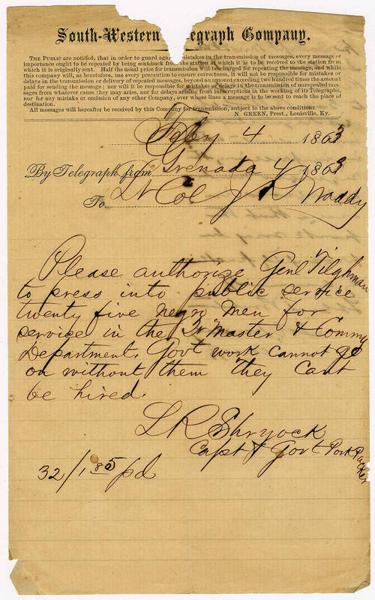 South-Western Telegraph Company.
THE PUBLIC are notified, that in order to guard against mistakes in the transmission of messages, every message of
importance ought to be repeated by being sent back from the station at which it is to be received to the station from
which it is originally sent. Half the usual price for transmission will be charged for repeating the message, and while
this company will, as heretofore, use every precaution to ensure correctness, it will not be responsible for mistakes or
delays in the transmission or delivery of repeated messages, from whatever cause, beyond an amount exceeding two hundred times the amount
paid for sending the message; nor will it be responsible for mistakes or delays in the transmission of unrepeated mes-
sages from whatever cause they may arise, nor for delays arising from interruptions in the working of its Telegraphs,
nor for any mistake or omission of any other Company, over whose lines a message is to be sent to reach the place of
destination.
All messages will hereafter be received by this Company for transmission, subject to the above conditions.
N. GREEN, Prest., Louisville, Ky.
4 1863
By Telegraph from Grenada 4 1863
To Lt Col J R Waddy
Please authorize Genl Tilghman
to press into public service
twenty five Negro men for
service in the Qr Master & Commy
Departments Govt work cannot go
on without them They cant
be hired
L R Shryock
Capt & Govt Pork Packer
32/185 pd